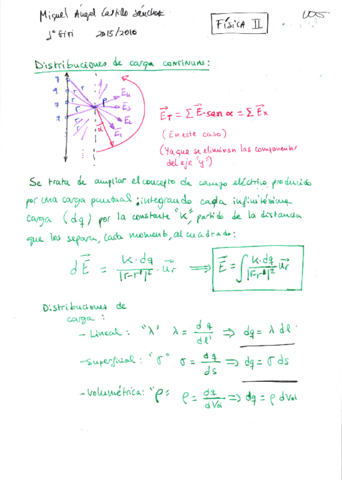 Miguel Ángel Castillo Sánchez
1º GITI 2015/2016
FÍSICA II
Distribuciones de carga continuas:
E⃗_T = Σ E⃗·sen α = Σ E⃗x
(En este caso)
(Ya que se eliminan las componentes
del eje "y")
Se trata de ampliar el concepto de campo eléctrico producido
por una carga puntual; integrando cada infinitésima
carga (dq) por la constante "K", partido de la distancia
que los separa, cada momento, al cuadrado:
dE⃗ = K·dq / |r-r'|² · u⃗r ⟹ E⃗ = ∫ K·dq / |r-r'|² u⃗r
Distribuciones de
carga:
- Lineal: "λ" λ = dq/dl' ⟹ dq = λ dl'
- Superficial: "σ" σ = dq/ds ⟹ dq = σ ds
- Volumétrica: "ρ" ρ = dq/dVol ⟹ dq = ρ dVol